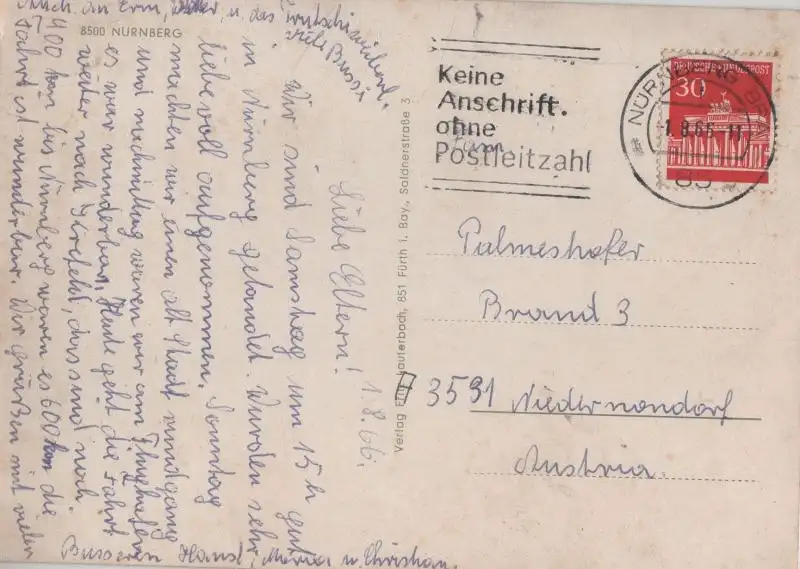 8500 NÜRNBERG
1.8.66.
Liebe Eltern!
Wir sind Samstag um 15 h gut
in Nürnberg gelandet. Wurden sehr
liebevoll aufgenommen. Sonntag
machten wir einen alt Stadt rundgang
und nachmittag waren wir am Flughafen
es war wunderbar. Heute geht die Fahrt
weiter nach das sind noch
400 km bis Nürnberg waren es 600 km die
Fahrt ist wunderbar. Wir grüßen mit vielen
Busseren Hansl, Maria u. Christian.
Auch an Erni, u. das
viele Bussi
Verlag Lauterbach, 851 Fürth i. Bay., Soldnerstraße 3
Keine
Anschrift.
ohne
Postleitzahl
DEUTSCHE BUNDESPOST
30
NÜRNBERG
1.8.66
85
Palmeshofer
Brand 3
3591 Niedernondorf
Austria.